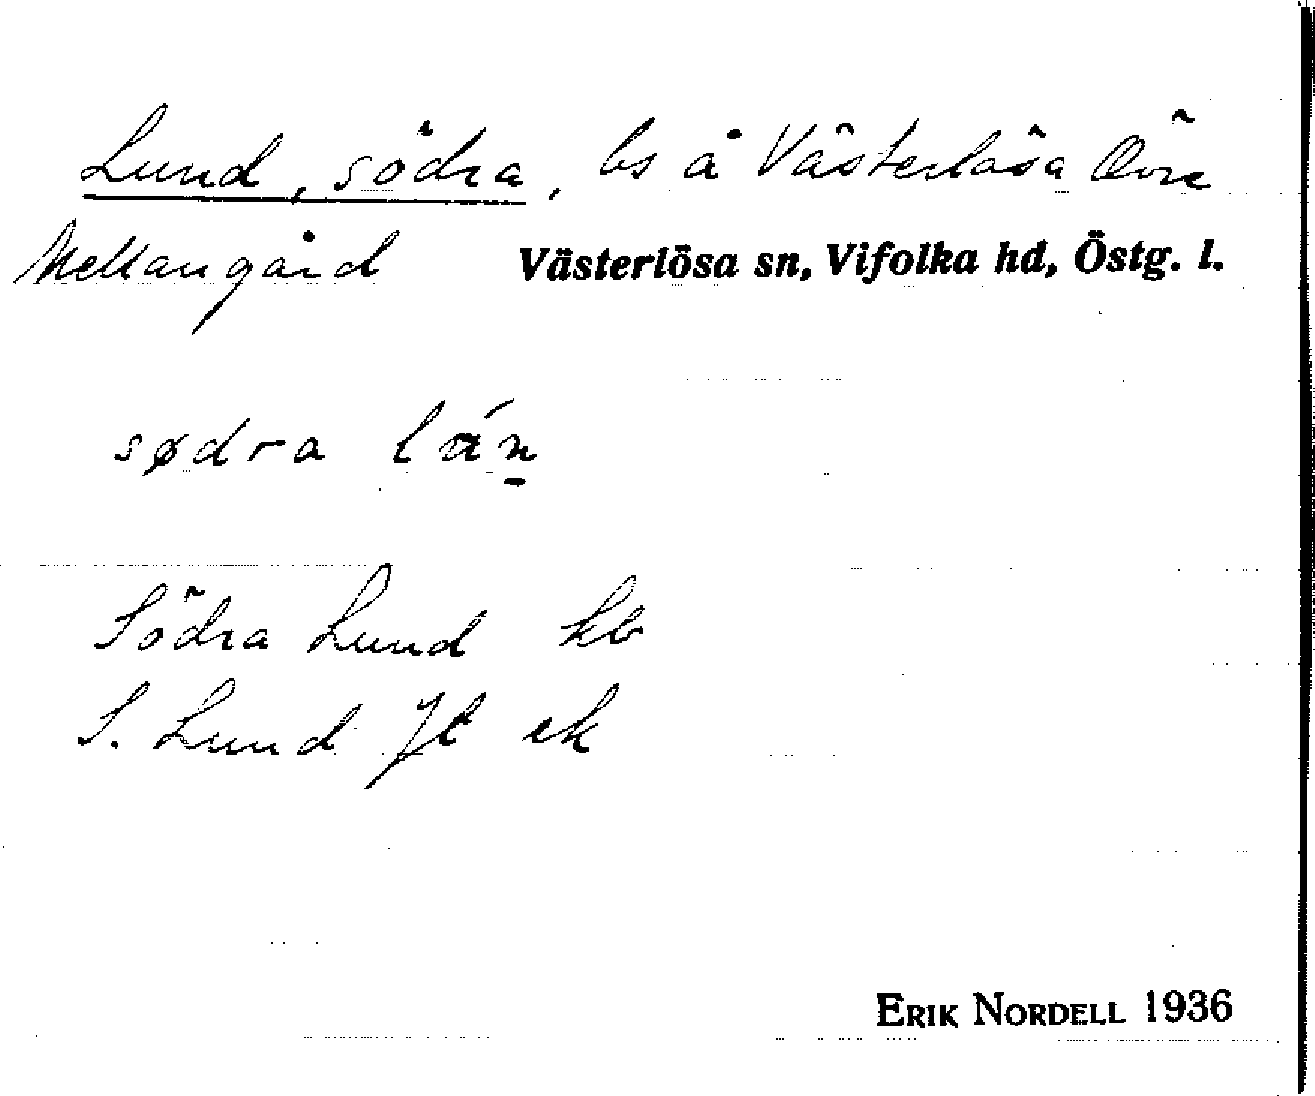 Lund, södra, bs å Västerlösa Övre
Mellangård Västerlösa sn, Vifolka hd, Östg. l.
sødra lán̲
Södra Lund kb
S. Lund Jt ek
ERIK NORDELL 1936